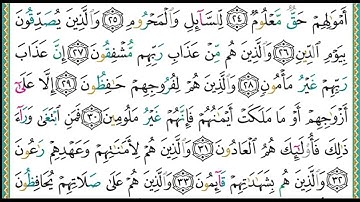 أَمْوَٰلِهِمْ حَقٌّ مَّعْلُومٌ ٢٤ لِّلسَّآئِلِ وَٱلْمَحْرُومِ ٢٥ وَٱلَّذِينَ يُصَدِّقُونَ
بِيَوْمِ ٱلدِّينِ ٢٦ وَٱلَّذِينَ هُم مِّنْ عَذَابِ رَبِّهِم مُّشْفِقُونَ ٢٧ إِنَّ عَذَابَ
رَبِّهِمْ غَيْرُ مَأْمُونٍ ٢٨ وَٱلَّذِينَ هُمْ لِفُرُوجِهِمْ حَٰفِظُونَ ٢٩ إِلَّا عَلَىٰٓ
أَزْوَٰجِهِمْ أَوْ مَا مَلَكَتْ أَيْمَٰنُهُمْ فَإِنَّهُمْ غَيْرُ مَلُومِينَ ٣٠ فَمَنِ ٱبْتَغَىٰ وَرَآءَ
ذَٰلِكَ فَأُو۟لَٰٓئِكَ هُمُ ٱلْعَادُونَ ٣١ وَٱلَّذِينَ هُمْ لِأَمَٰنَٰتِهِمْ وَعَهْدِهِمْ رَٰعُونَ
٣٢ وَٱلَّذِينَ هُم بِشَهَٰدَٰتِهِمْ قَآئِمُونَ ٣٣ وَٱلَّذِينَ هُمْ عَلَىٰ صَلَاتِهِمْ يُحَافِظُونَ